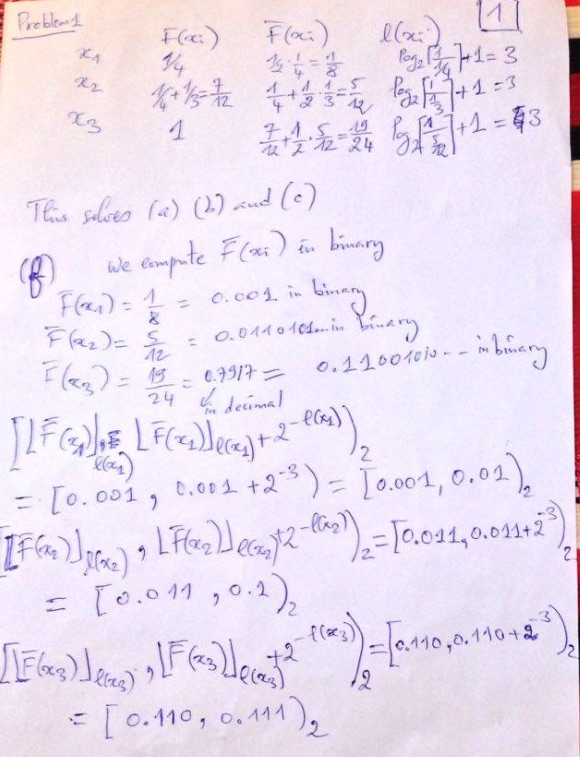 Problem 1
1
F(xi) F̄(xi) l(xi)
x1 1/4 1/2 · 1/4 = 1/8 log2⌈1/(1/4)⌉+1 = 3
x2 1/4+1/3=7/12 1/4+1/2·1/3=5/12 log2⌈1/(1/3)⌉+1=3
x3 1 7/12+1/2·5/12=19/24 log2⌈1/(5/12)⌉+1 = 3
This solves (a) (b) and (c)
we compute F̄(xi) in binary
F̄(x1) = 1/8 = 0.001 in binary
F̄(x2) = 5/12 = 0.0110101... in binary
F̄(x3) = 19/24 = 0.7917 = 0.1100101... in binary
in decimal
[⌊F̄(x1)⌋l(x1), ⌊F̄(x1)⌋l(x1) + 2^-l(x1))2
= [0.001, 0.001 + 2^-3) = [0.001, 0.01)2
[⌊F̄(x2)⌋l(x2), ⌊F̄(x2)⌋l(x2) + 2^-l(x2))2 = [0.011, 0.011+2^-3)2
= [0.011, 0.1)2
[⌊F̄(x3)⌋l(x3), ⌊F̄(x3)⌋l(x3) + 2^-l(x3))2 = [0.110, 0.110+2^-3)2
= [0.110, 0.111)2